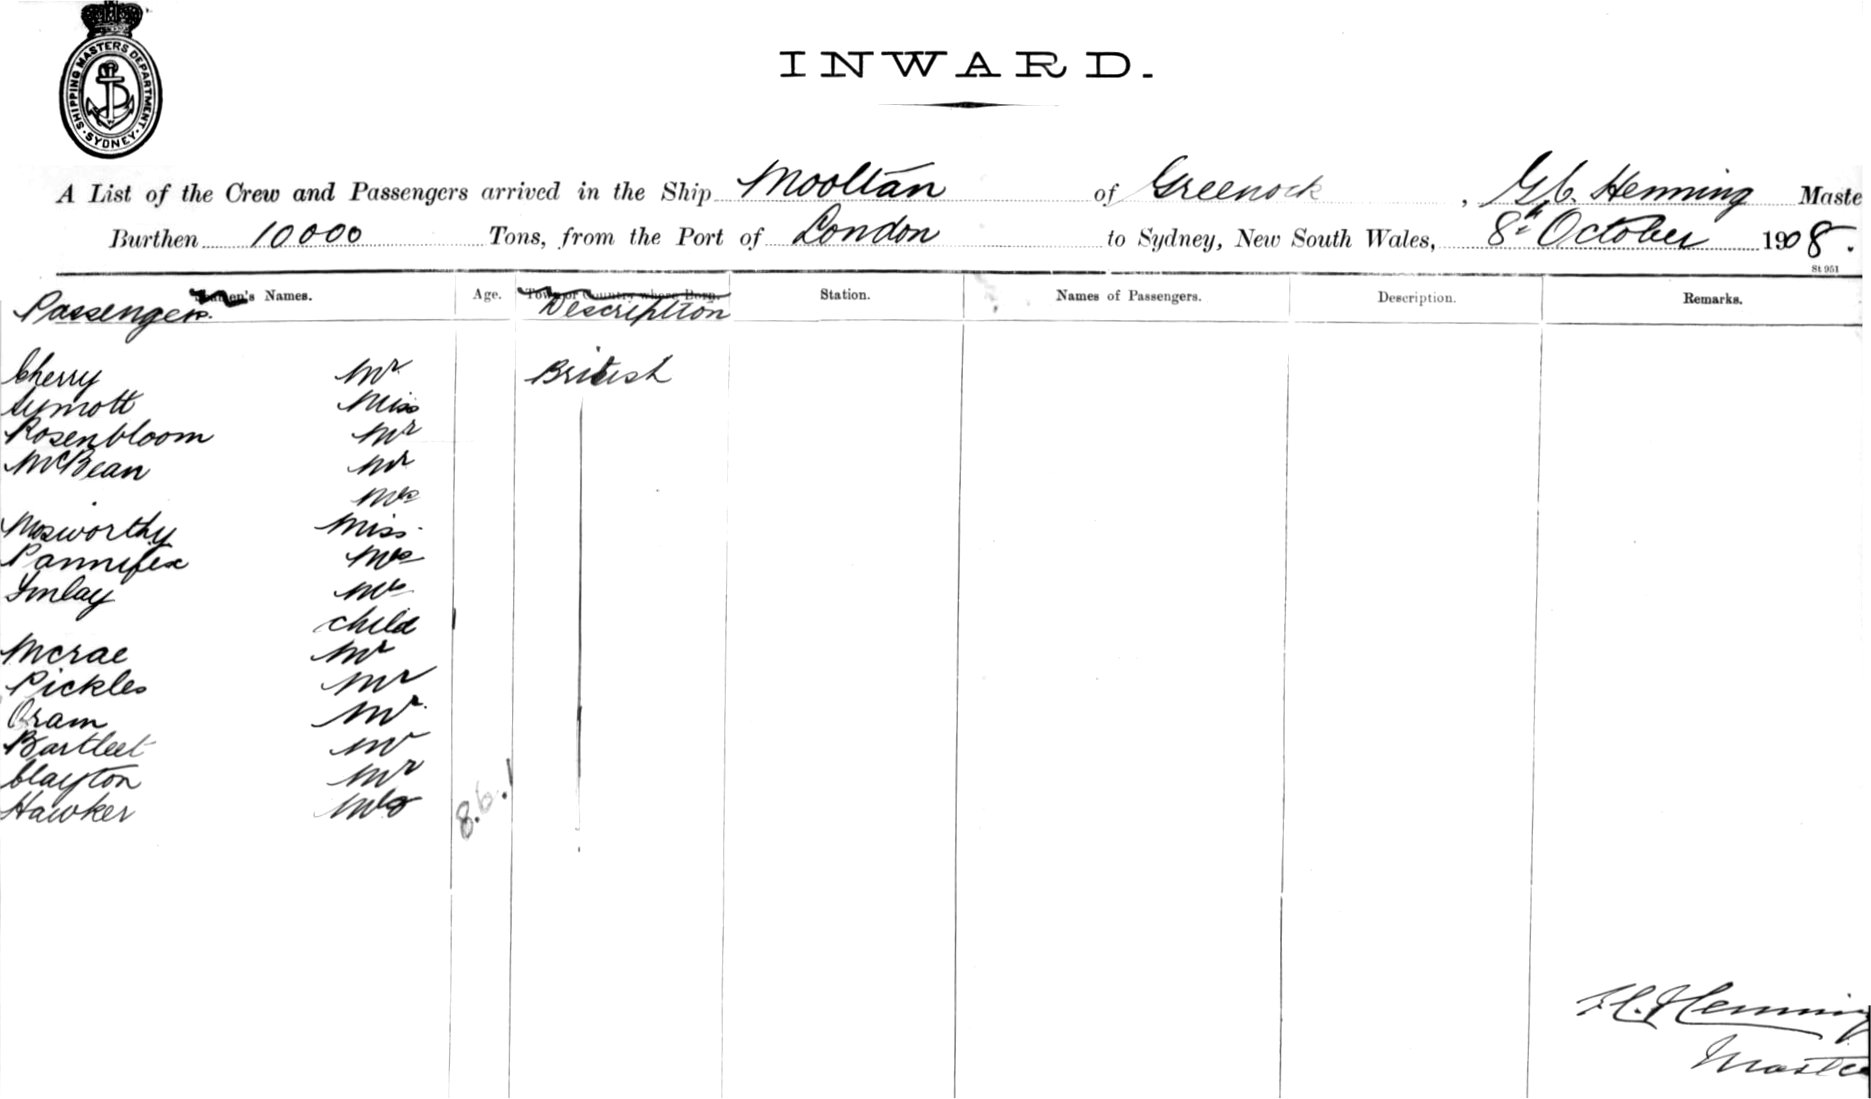 SHIPPING MASTERS DEPARTMENT · SYDNEY ·
INWARD.
A List of the Crew and Passengers arrived in the Ship Mooltan of Greenock, G. C. Henning Maste
Burthen 10000 Tons, from the Port of London to Sydney, New South Wales, 8th October 1908.
St 951
Seamen's Names. Age. Town or Country where Born. Station. Names of Passengers. Description. Remarks.
Passengers. Description
Cherry Mr British
Symott Miss
Rosenbloom Mr
McBean Mr
Mrs
Mosworthy Miss
Pannifex Mrs
Finlay Mrs
child 1
Mcrae Mr
Pickles Mr
Oram Mr
Bartleet Mr
Clayton Mr
Hawker Mrs 8.6.1
Henning
Master